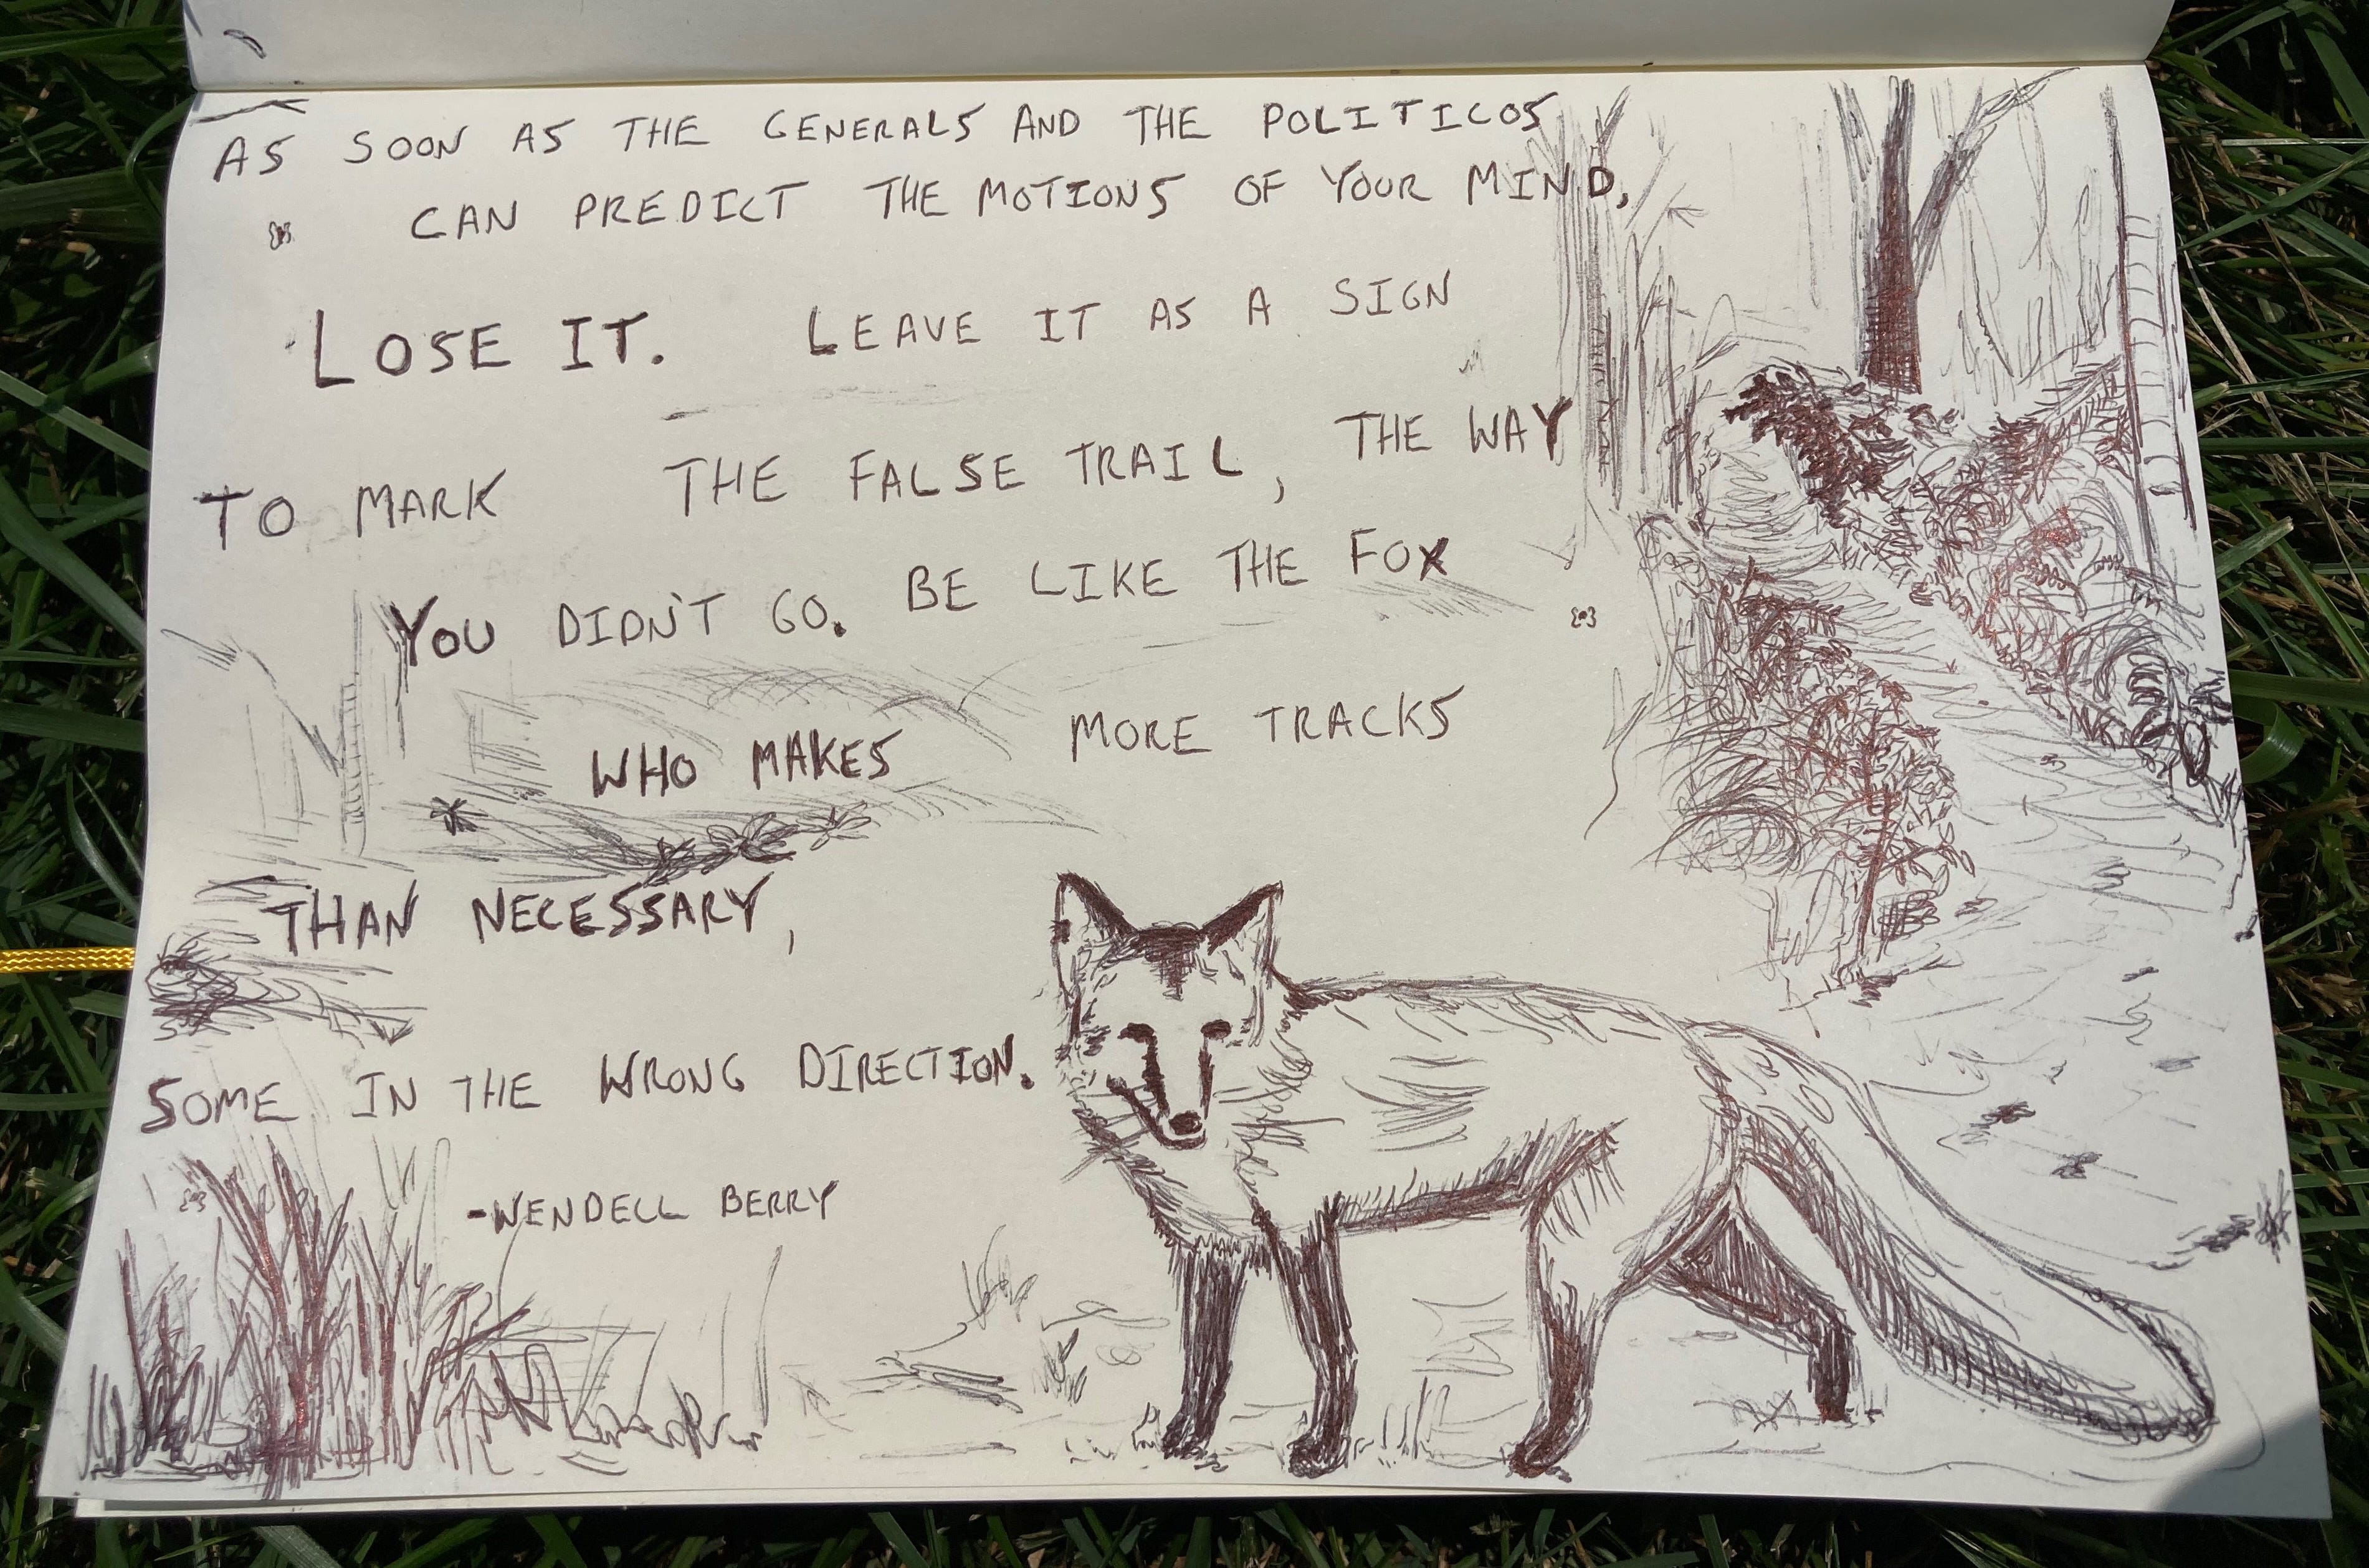 AS SOON AS THE GENERALS AND THE POLITICOS
CAN PREDICT THE MOTIONS OF YOUR MIND,
LOSE IT. LEAVE IT AS A SIGN
TO MARK THE FALSE TRAIL, THE WAY
YOU DIDN'T GO. BE LIKE THE FOX
WHO MAKES MORE TRACKS
THAN NECESSARY,
SOME IN THE WRONG DIRECTION.
-WENDELL BERRY